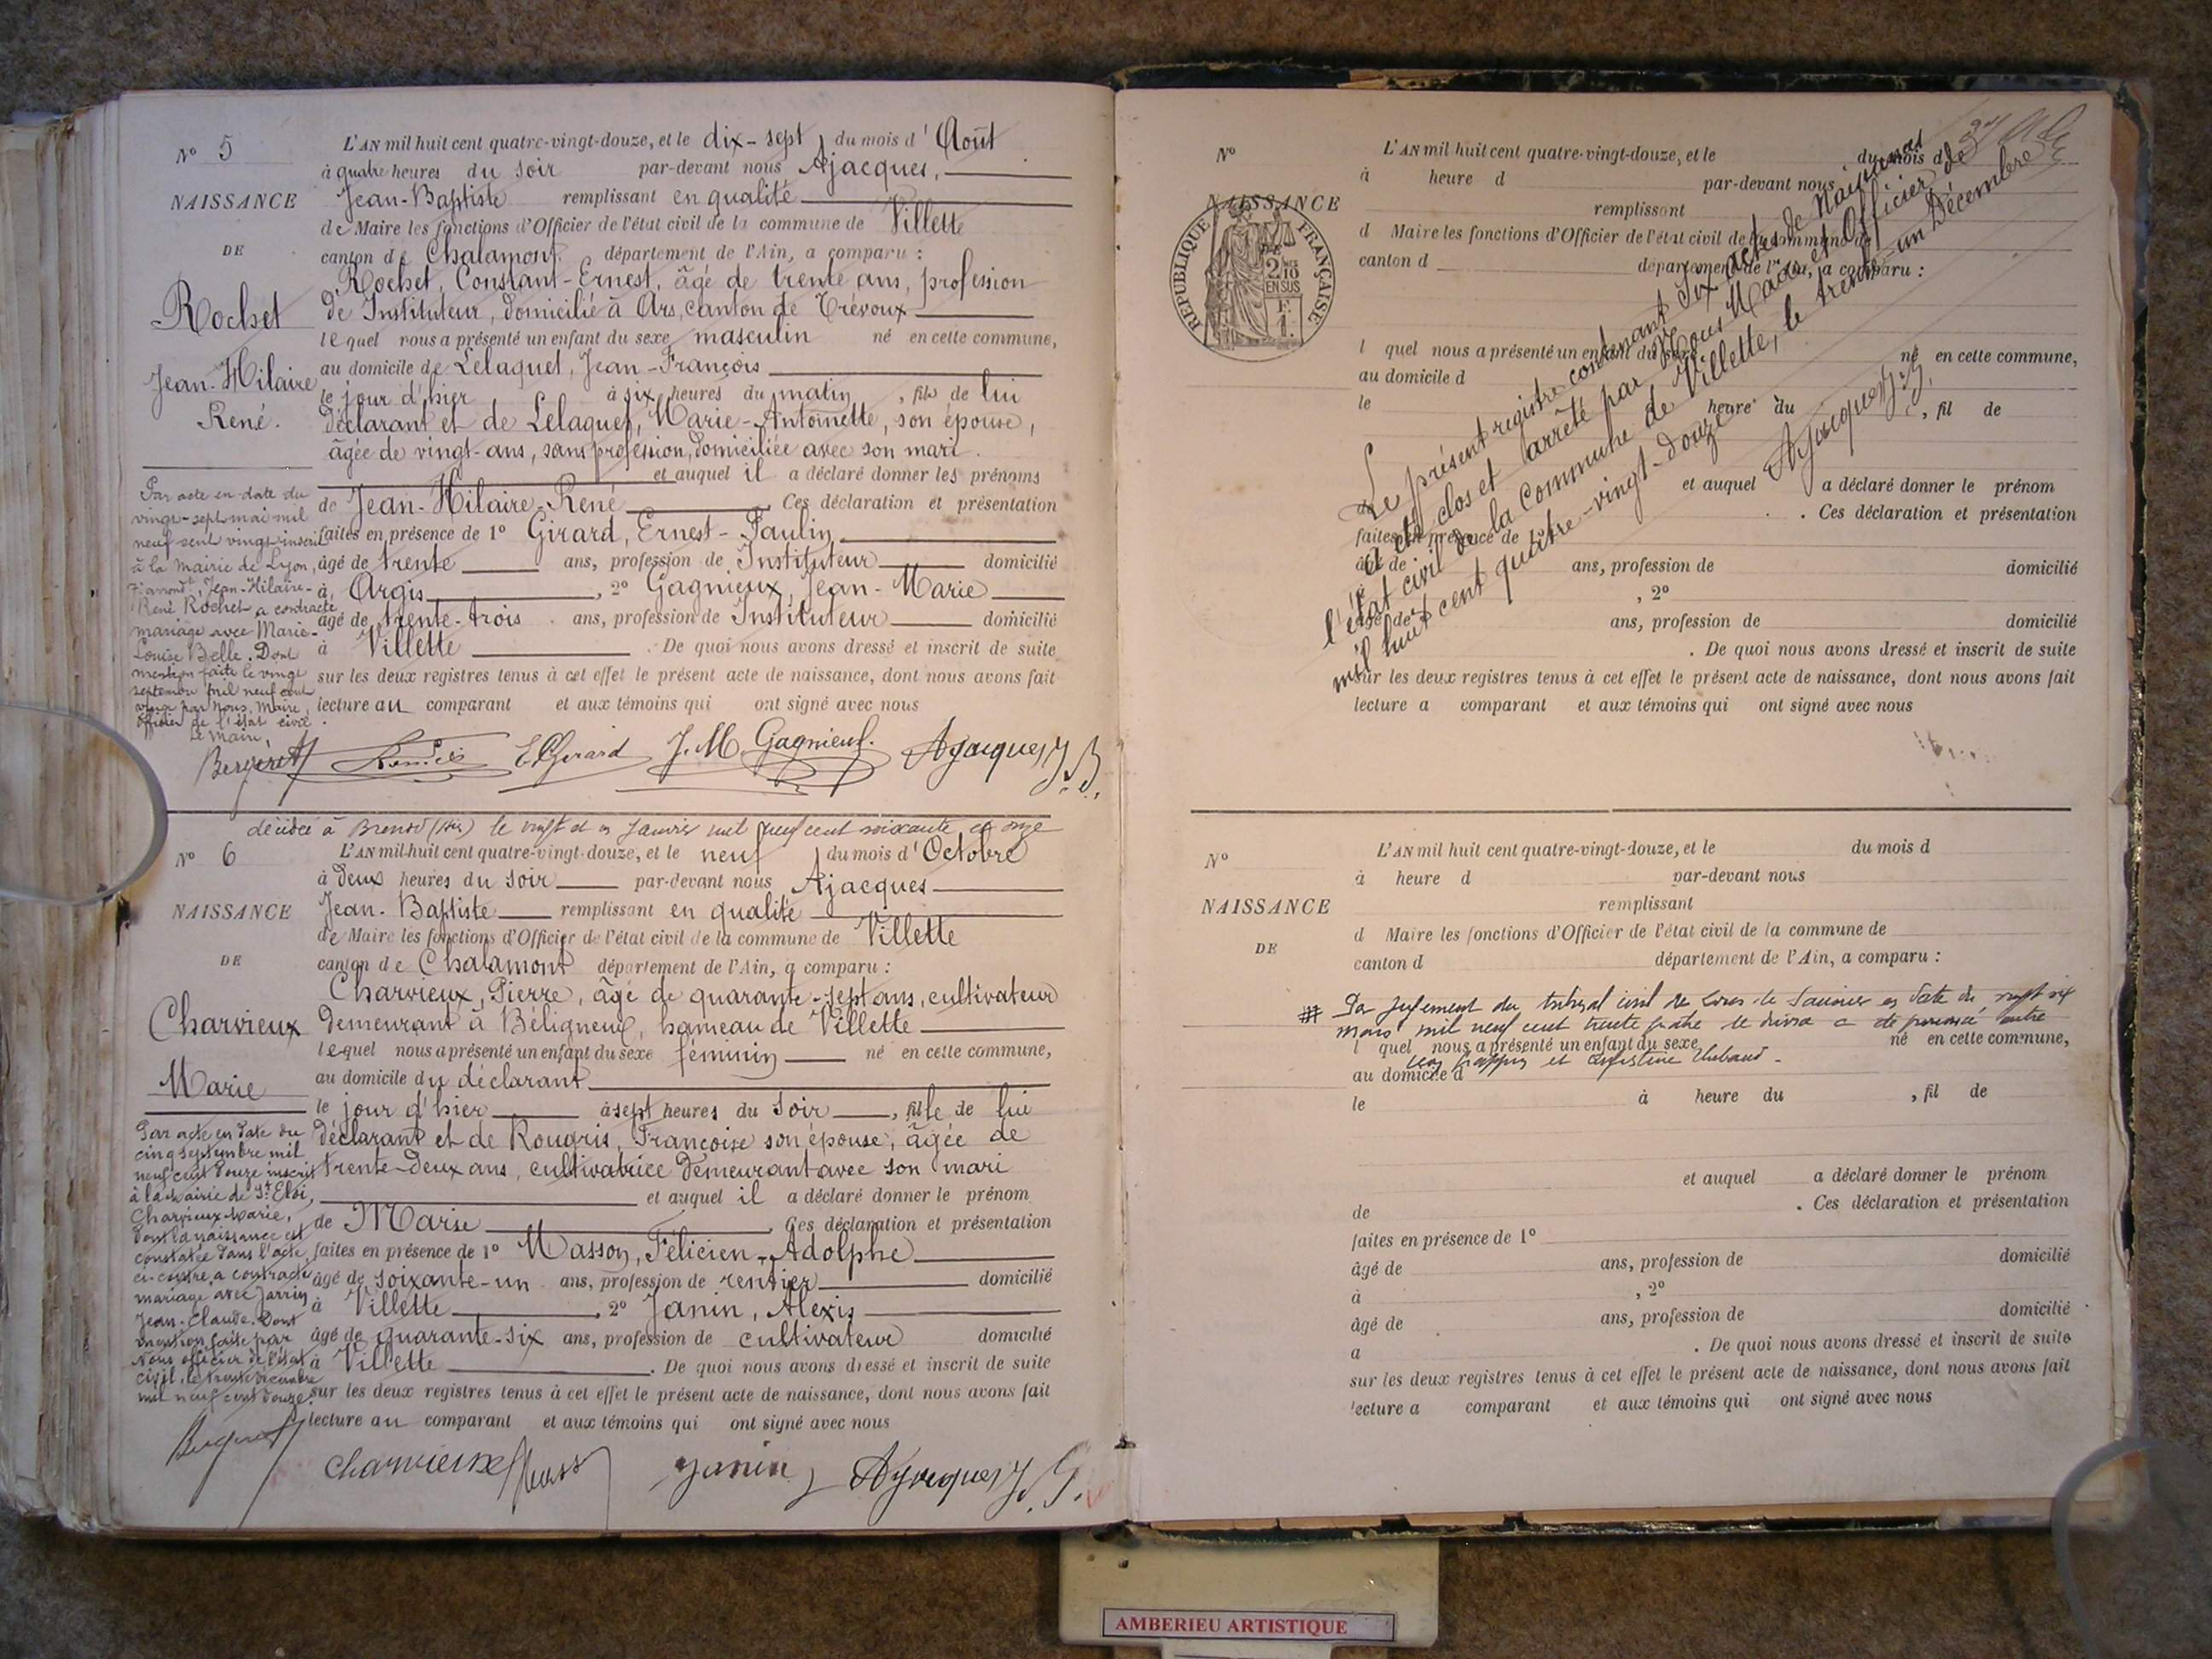 Nº 5
L'AN mil huit cent quatre-vingt-douze, et le dix-sept du mois d'Août
à quatre heures du soir par-devant nous Ajacques,
NAISSANCE
Jean-Baptiste remplissant en qualité
de Maire les fonctions d'Officier de l'état civil de la commune de Villette
DE
canton de Chalamont département de l'Ain, a comparu :
Rochet, Constant-Ernest, âgé de trente ans, profession
Rochet
de Instituteur, domicilié à Ars, canton de Trévoux
lequel nous a présenté un enfant du sexe masculin né en cette commune,
Jean-Hilaire
au domicile de Lelaquet, Jean-François
le jour d'hier à six heures du matin, fils de lui
René.
déclarant et de Lelaquet, Marie-Antoinette, son épouse,
âgée de vingt-ans, sans profession, domiciliée avec son mari.
et auquel il a déclaré donner les prénoms
de Jean-Hilaire-René Ces déclaration et présentation
faites en présence de 1º Girard, Ernest-Paulin
âgé de trente ans, profession de Instituteur domicilié
à Argis, 2º Gagnieux, Jean-Marie
âgé de trente-trois ans, profession de Instituteur domicilié
à Villette. De quoi nous avons dressé et inscrit de suite
sur les deux registres tenus à cet effet le présent acte de naissance, dont nous avons fait
lecture au comparant et aux témoins qui ont signé avec nous
Par acte en date du
vingt-sept mai mil
neuf cent vingt inscrit
à la mairie de Lyon,
Jean-Hilaire-
René Rochet a contracté
mariage avec Marie-
Louise Belle. Dont
mention faite le vingt
septembre mil neuf cent
vingt par nous, Maire,
officier de l'état civil.
Le Maire,
Bergeret E. Girard J. M. Gagnieux. Ajacques J. B.
décédée à le vingt et un Janvier mil neuf cent soixante et onze
Nº 6
L'AN mil-huit cent quatre-vingt-douze, et le neuf du mois d'Octobre
à deux heures du soir par-devant nous Ajacques
NAISSANCE
Jean-Baptiste remplissant en qualité
de Maire les fonctions d'Officier de l'état civil de la commune de Villette
DE
canton de Chalamont département de l'Ain, a comparu :
Charvieux, Pierre, âgé de quarante-sept ans, cultivateur
Charvieux
demeurant à Béligneux, hameau de Villette
lequel nous a présenté un enfant du sexe féminin né en cette commune,
Marie
au domicile du déclarant
le jour d'hier à sept heures du soir, fille de lui
déclarant et de Rougris, Françoise son épouse, âgée de
trente-deux ans, cultivatrice demeurant avec son mari
et auquel il a déclaré donner le prénom
de Marie Ces déclaration et présentation
faites en présence de 1º Masson, Félicien-Adolphe
âgé de soixante-un ans, profession de rentier domicilié
à Villette, 2º Janin, Alexis
âgé de quarante-six ans, profession de cultivateur domicilié
à Villette. De quoi nous avons dressé et inscrit de suite
sur les deux registres tenus à cet effet le présent acte de naissance, dont nous avons fait
lecture au comparant et aux témoins qui ont signé avec nous
Par acte en date du
cinq septembre mil
neuf cent douze inscrit
à la mairie de St Eloi,
Charvieux Marie,
dont la naissance est
constatée dans l'acte
ci-contre a contracté
mariage avec Jarrin
Jean-Claude. Dont
mention faite par
Nous officier de l'état
civil, le trente décembre
mil neuf cent douze.
Bergeret Charvieux Janin Ajacques J. B.
Nº
L'AN mil huit cent quatre-vingt-douze, et le du mois d
à heure d par-devant nous
NAISSANCE
remplissant
d Maire les fonctions d'Officier de l'état civil de la commune de
canton d département de l'Ain, a comparu :
RÉPUBLIQUE FRANÇAISE
2/10
EN SUS
F.
1.
l quel nous a présenté un enfant du sexe né en cette commune,
au domicile d
le heure du , fil de
et auquel a déclaré donner le prénom
. Ces déclaration et présentation
faites en présence de
âgé de ans, profession de domicilié
, 2º
âgé de ans, profession de domicilié
. De quoi nous avons dressé et inscrit de suite
sur les deux registres tenus à cet effet le présent acte de naissance, dont nous avons fait
lecture a comparant et aux témoins qui ont signé avec nous
Le présent registre contenant Six actes de Naissances
a été clos et arrêté par Nous Maire et Officier de
l'état civil de la commune de Villette, le trente-un Décembre
mil huit cent quatre-vingt-douze.
Ajacques J. B.
Nº
L'AN mil huit cent quatre-vingt-douze, et le du mois d
à heure d par-devant nous
NAISSANCE
remplissant
d Maire les fonctions d'Officier de l'état civil de la commune de
DE
canton d département de l'Ain, a comparu :
# Par jugement du tribunal civil de Lons-le-Saunier en date du vingt six
mars mil neuf cent trente quatre le divorce a été prononcé entre
l quel nous a présenté un enfant du sexe né en cette commune,
et
au domicile d
le à heure du , fil de
et auquel a déclaré donner le prénom
de . Ces déclaration et présentation
faites en présence de 1º
âgé de ans, profession de domicilié
à , 2º
âgé de ans, profession de domicilié
a . De quoi nous avons dressé et inscrit de suite
sur les deux registres tenus à cet effet le présent acte de naissance, dont nous avons fait
lecture a comparant et aux témoins qui ont signé avec nous
AMBERIEU ARTISTIQUE